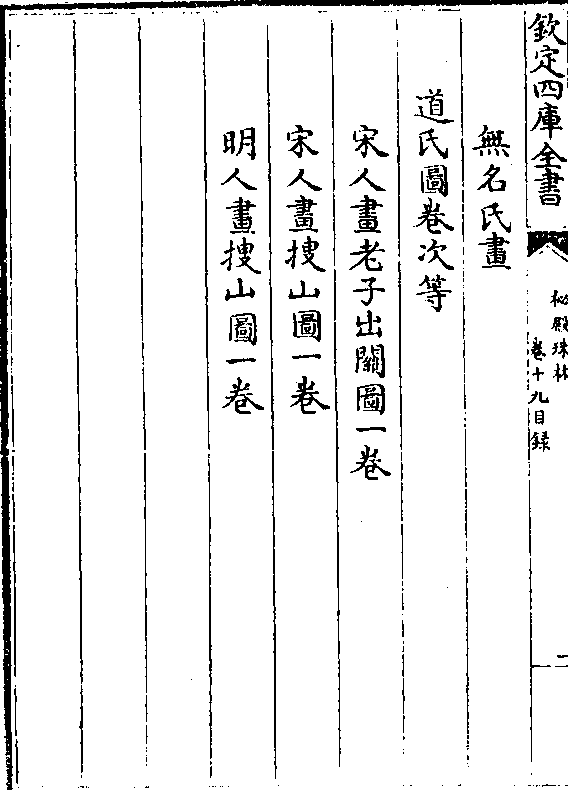 欽定四庫全書
秘殿珠林
卷十九目録
二
無名氏畫
道氏圖卷次等
宋人畫老子出關圖一卷
宋人畫搜山圖一卷
明人畫搜山圖一卷